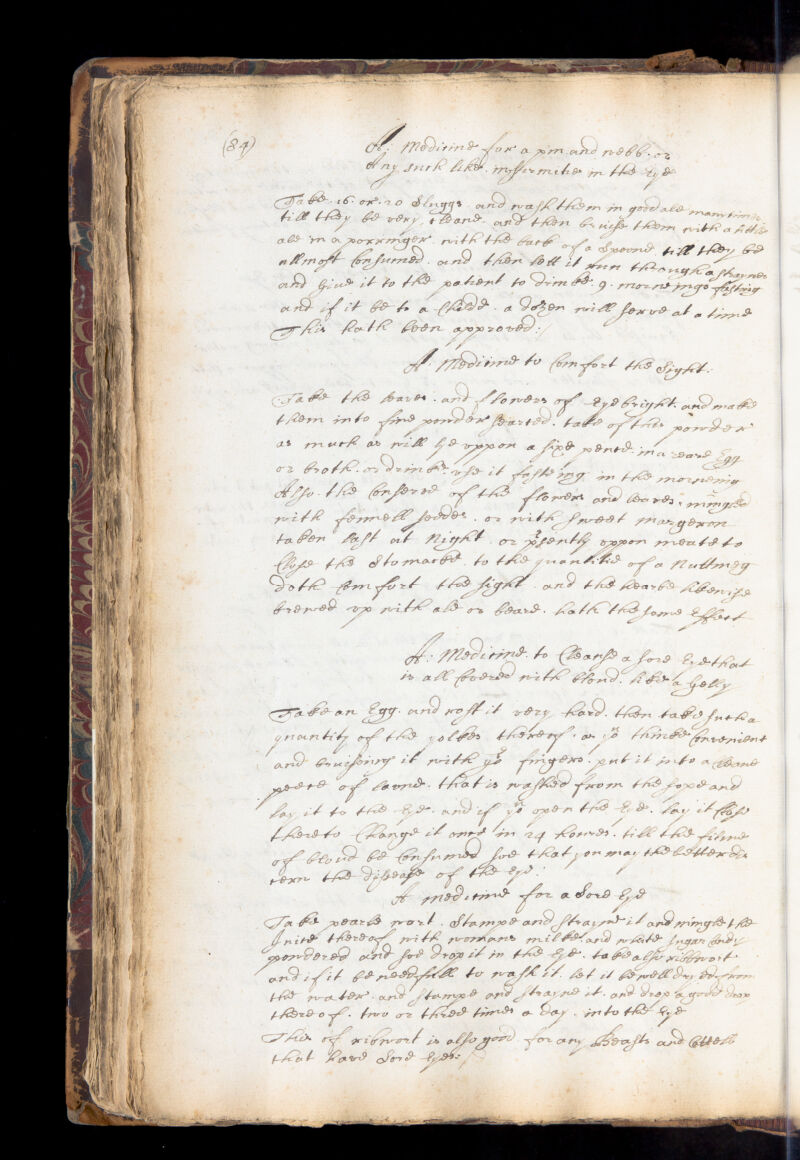 (84)
A: Medicine for a pin and webb or
Any such like infirmitie in the Eye
Take 16. or. 20 Sluggs and wash them in good ale many times
till they be very cleane. and then bruise them with a little
ale in a porringer with the back of a Spoone till they be
allmost Consumed. and then lett it run through a strayner
and Give it to the patient to drinke. 9. morneings fasting
and if it be to a Childe. a dozen will serve at a time
This hath been approved:/
A. Medicine to Comfort the Sight:
Take the leaves. and flowers of Eyebright. and make
them into fine powder searced. take of this powder
as much as will lye uppon a sixe pence. in a reare Egg
or broth. or drinke. use it fasteing in the morneing
Also. the Conserve of the flowers and leaves. mingled
with fennell seedes. or with sweet margerom
taken last at Night. or psently uppon meate to
Close the Stomacke. to the quantitie of a Nuttmeg
doth Comfort the sight. and the hearbe likewise
brewed up with ale or beare. hath the same Effect
A: Medicine. to Cleanse a sore Eye that
is all Covered with bloud. like a Gelly
Take an Egg. and rost it very hard. then take such a
quantity of the yolkes thereof. as yo thinke Convenient
and bruiseing it with yr fingers. put it into a cleane
peece of lawne. that is washed from the sope and
lay it to the Eye. and if yo open the Eye. lay it Close
thereto Change it once in 24 howres. till the filme
of bloud be Consumed soe that you may the better dis
cern the disease of the Eye:
A medicine for a Sore Eye
Take pearle wort. Stampe and strayne it and mingle the
Juice thereof with womans milke. and white sugar Candy
powdered and soe drop it in the Eye. take also ribbwort.
and if it be needfull to wash it. let it be well dryed from
the water. and stampe and strayne it. and drop a good drop
thereof. two or three times a day. into the Eye
This of ribwort is also good for any Beasts and Cattell
that have Sore Eyes:/